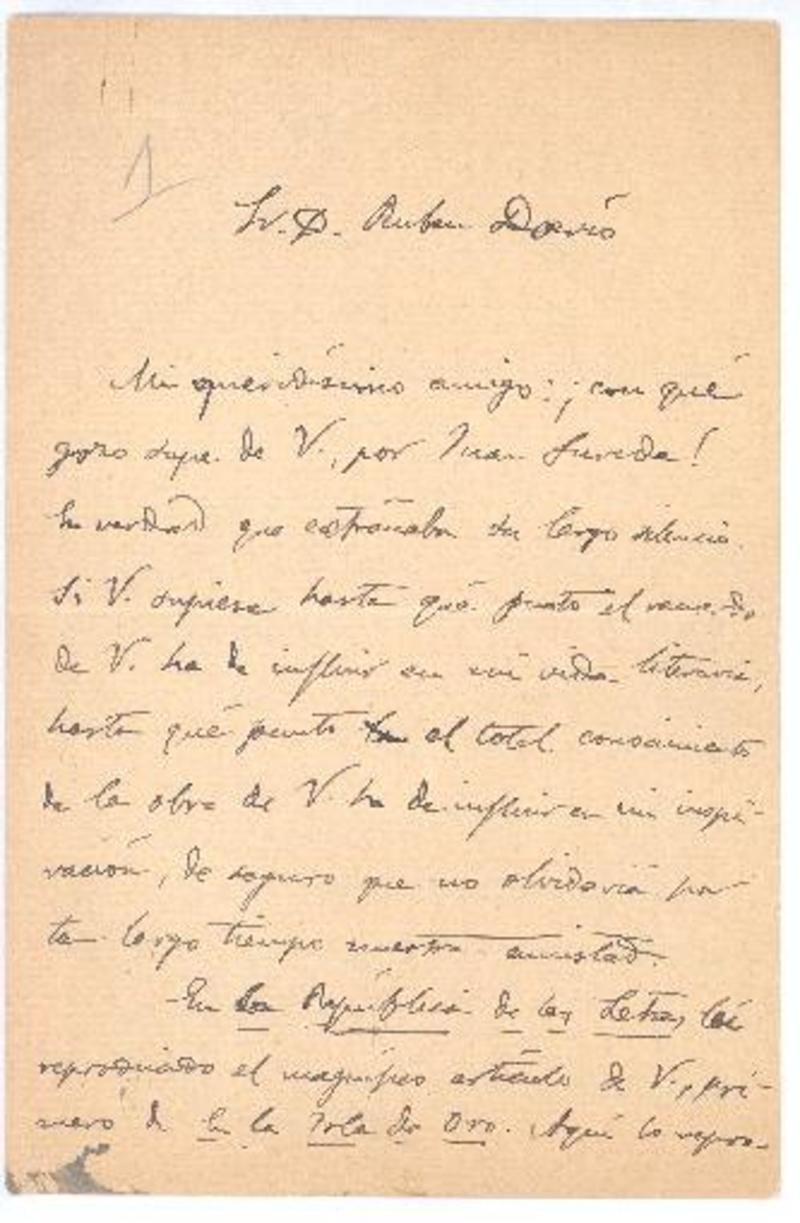 1
Sr. D. Ruben Darío
Mi queridísimo amigo: ¡con qué
gozo supe de V., por Juan Sureda!
En verdad que extrañaba su largo silencio.
Si V. supiese hasta qué punto el recuerdo
de V. ha de influir en mi vida literaria,
hasta qué punto el total conocimiento
de la obra de V. ha de influir en mi inspi-
ración, de seguro que no olvidaría por
tan largo tiempo nuestra amistad.
En La República de las Letras leí
reproducido el magnífico artículo de V., pri-
mero de En la Isla de Oro. Aquí lo repro-